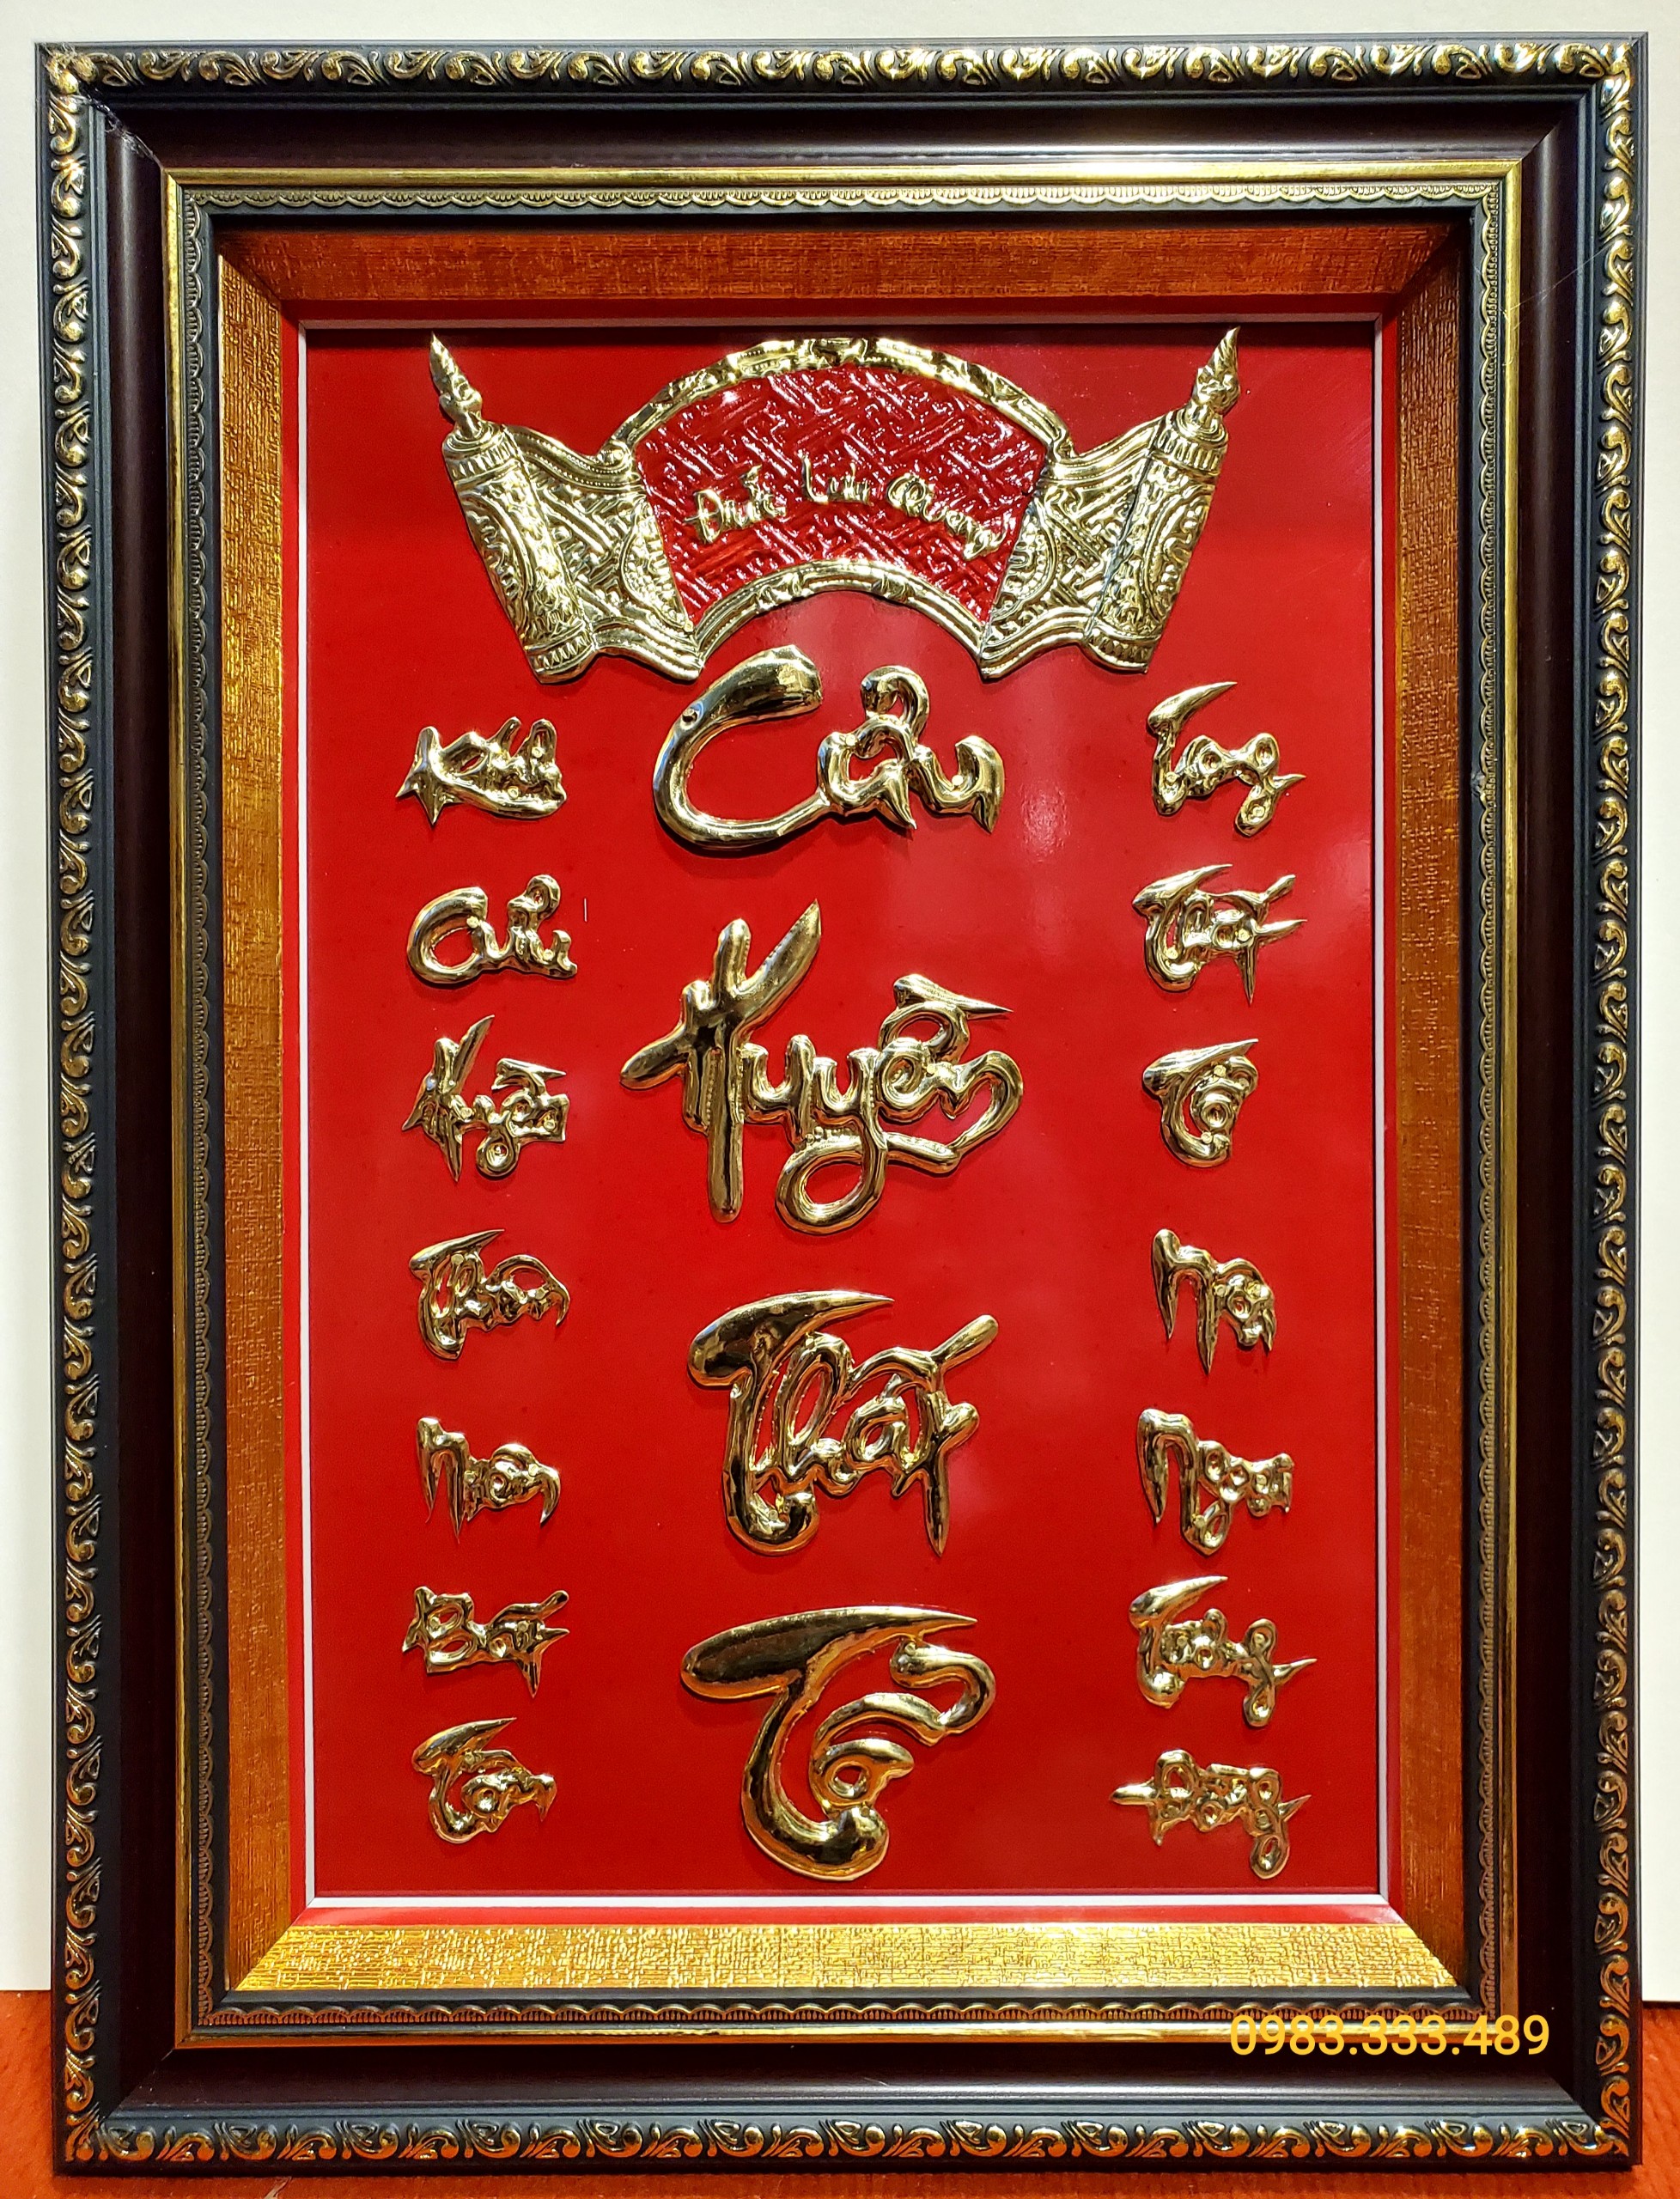 Đức Lưu Quang
Cửu
Huyền
Thất
Tổ
Kính
Cửu
Huyền
Thiên
Niên
Bất
Tận
Trọng
Thất
Tổ
Nội
Ngoại
Đồng
0983.333.489